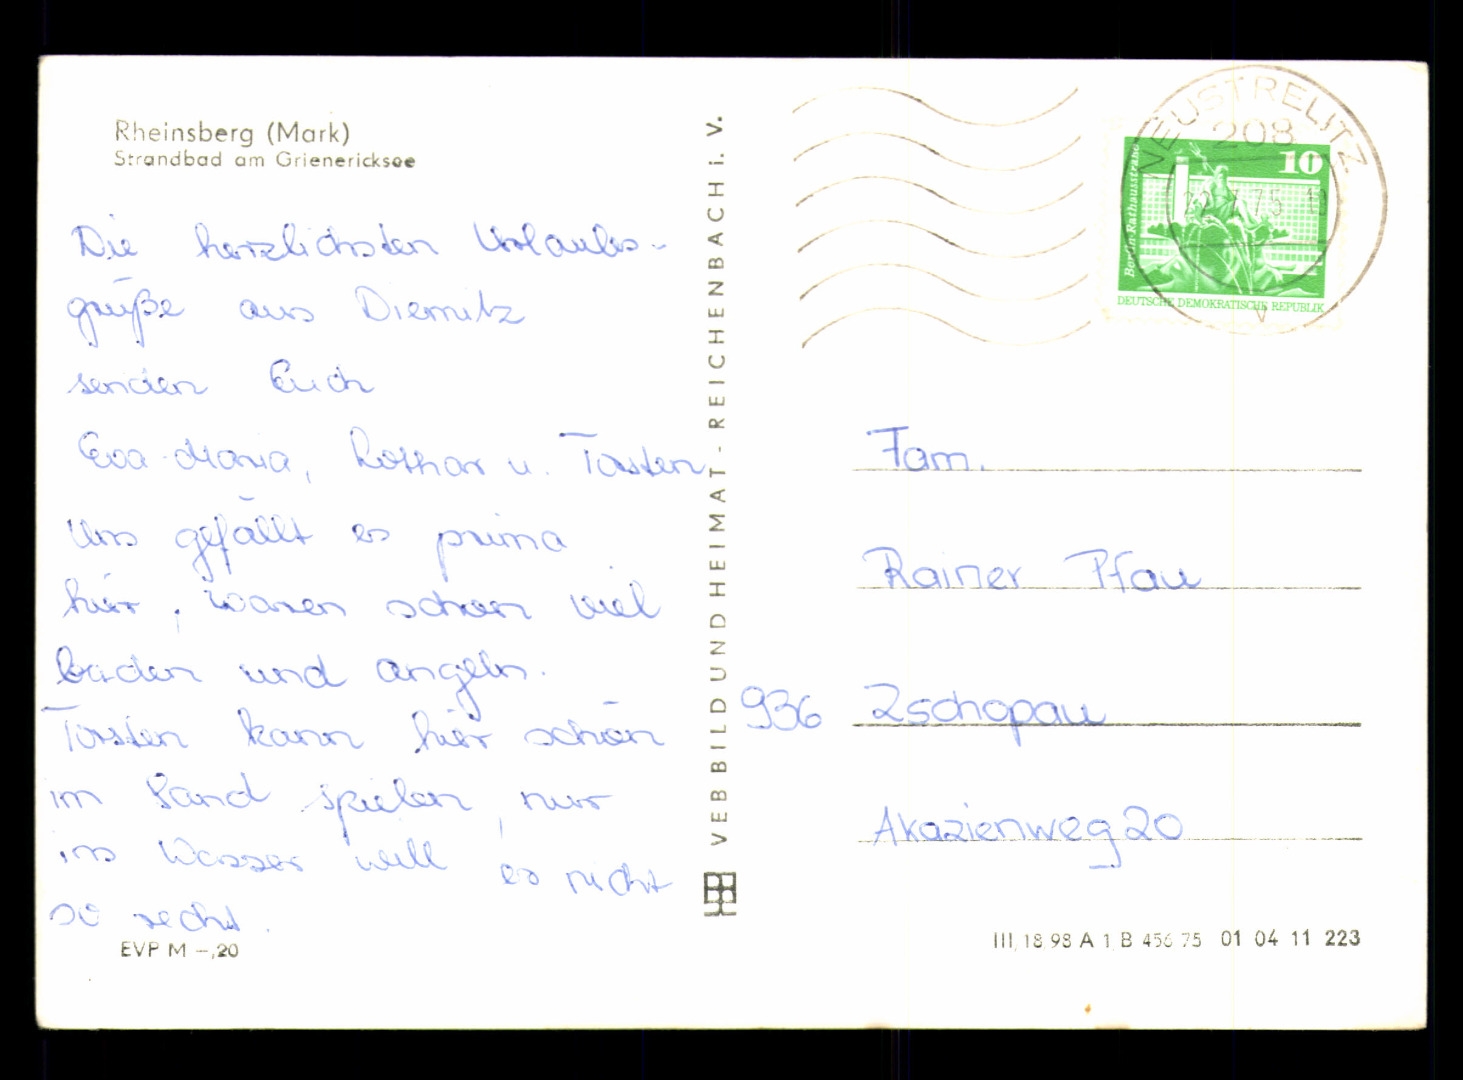 Rheinsberg (Mark)
Strandbad am Grienericksee
Die herzlichsten Urlaubs-
grüße aus Diemitz
senden Euch
Eva-Maria, Lothar u. Torsten
Uns gefällt es prima
hier, waren schon viel
baden und angeln.
Torsten kann hier schön
im Sand spielen, nur
ins Wasser will es nicht
so recht.
EVP M –,20
VEB BILD UND HEIMAT - REICHENBACH i. V.
NEUSTRELITZ
208
75
10
Berlin Rathausstraße
DEUTSCHE DEMOKRATISCHE REPUBLIK
Fam.
Rainer Pfau
936 Zschopau
Akazienweg 20
III, 18 98 A 1 B 456 75 01 04 11 223